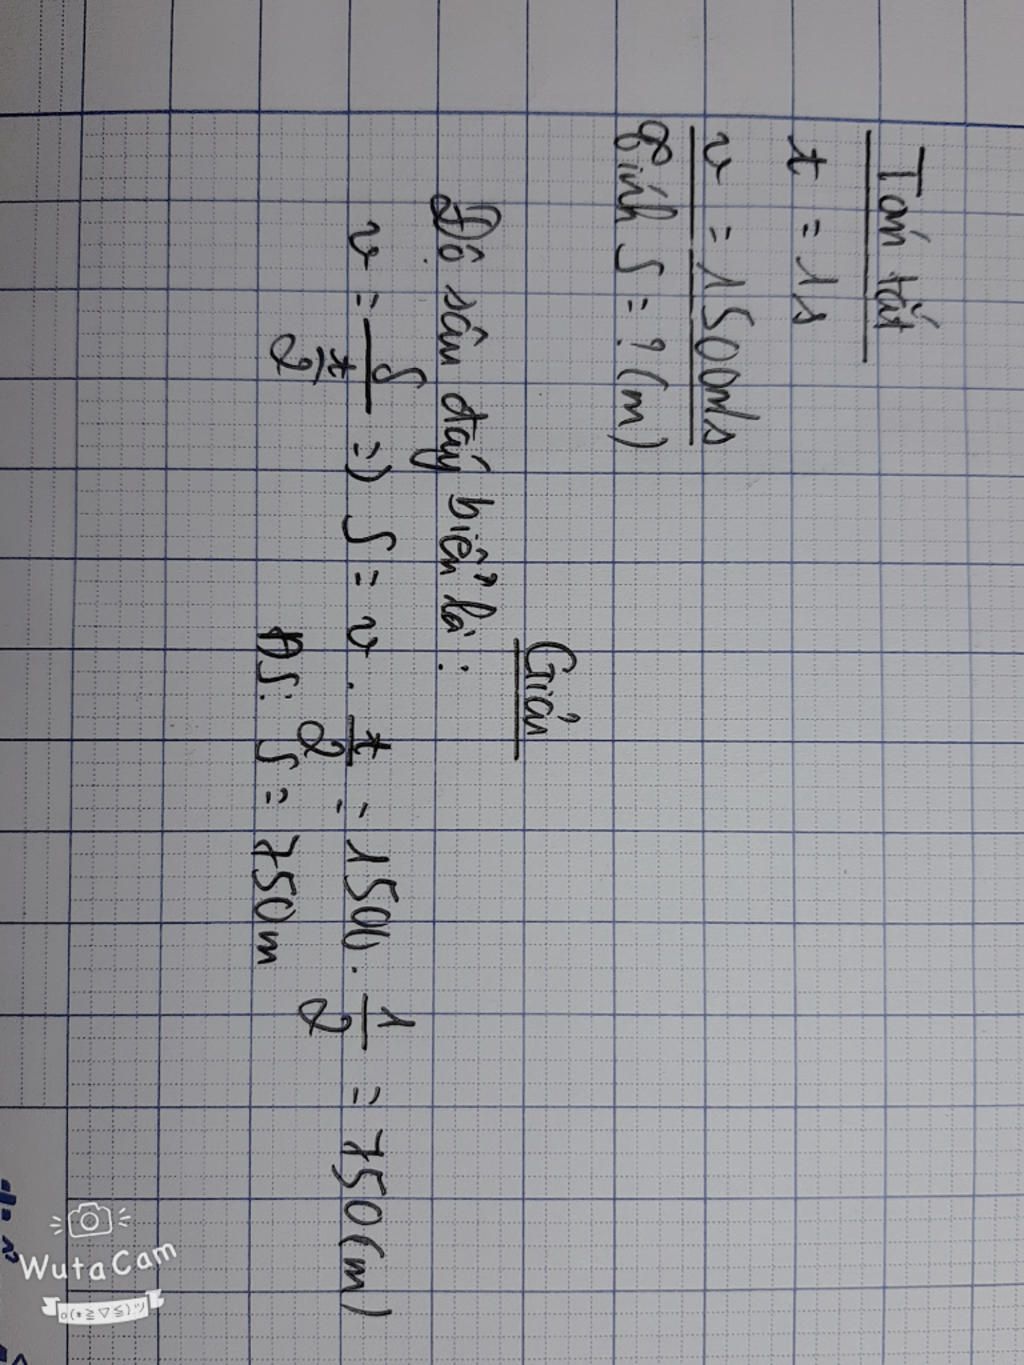 Tóm tắt
t = 1s
v = 1500m/s
Tính S = ? (m)
Giải
Độ sâu đáy biển là:
v = S / t/2 => S = v . t/2 = 1500 . 1/2 = 750 (m)
ĐS: S = 750m
WutaCam